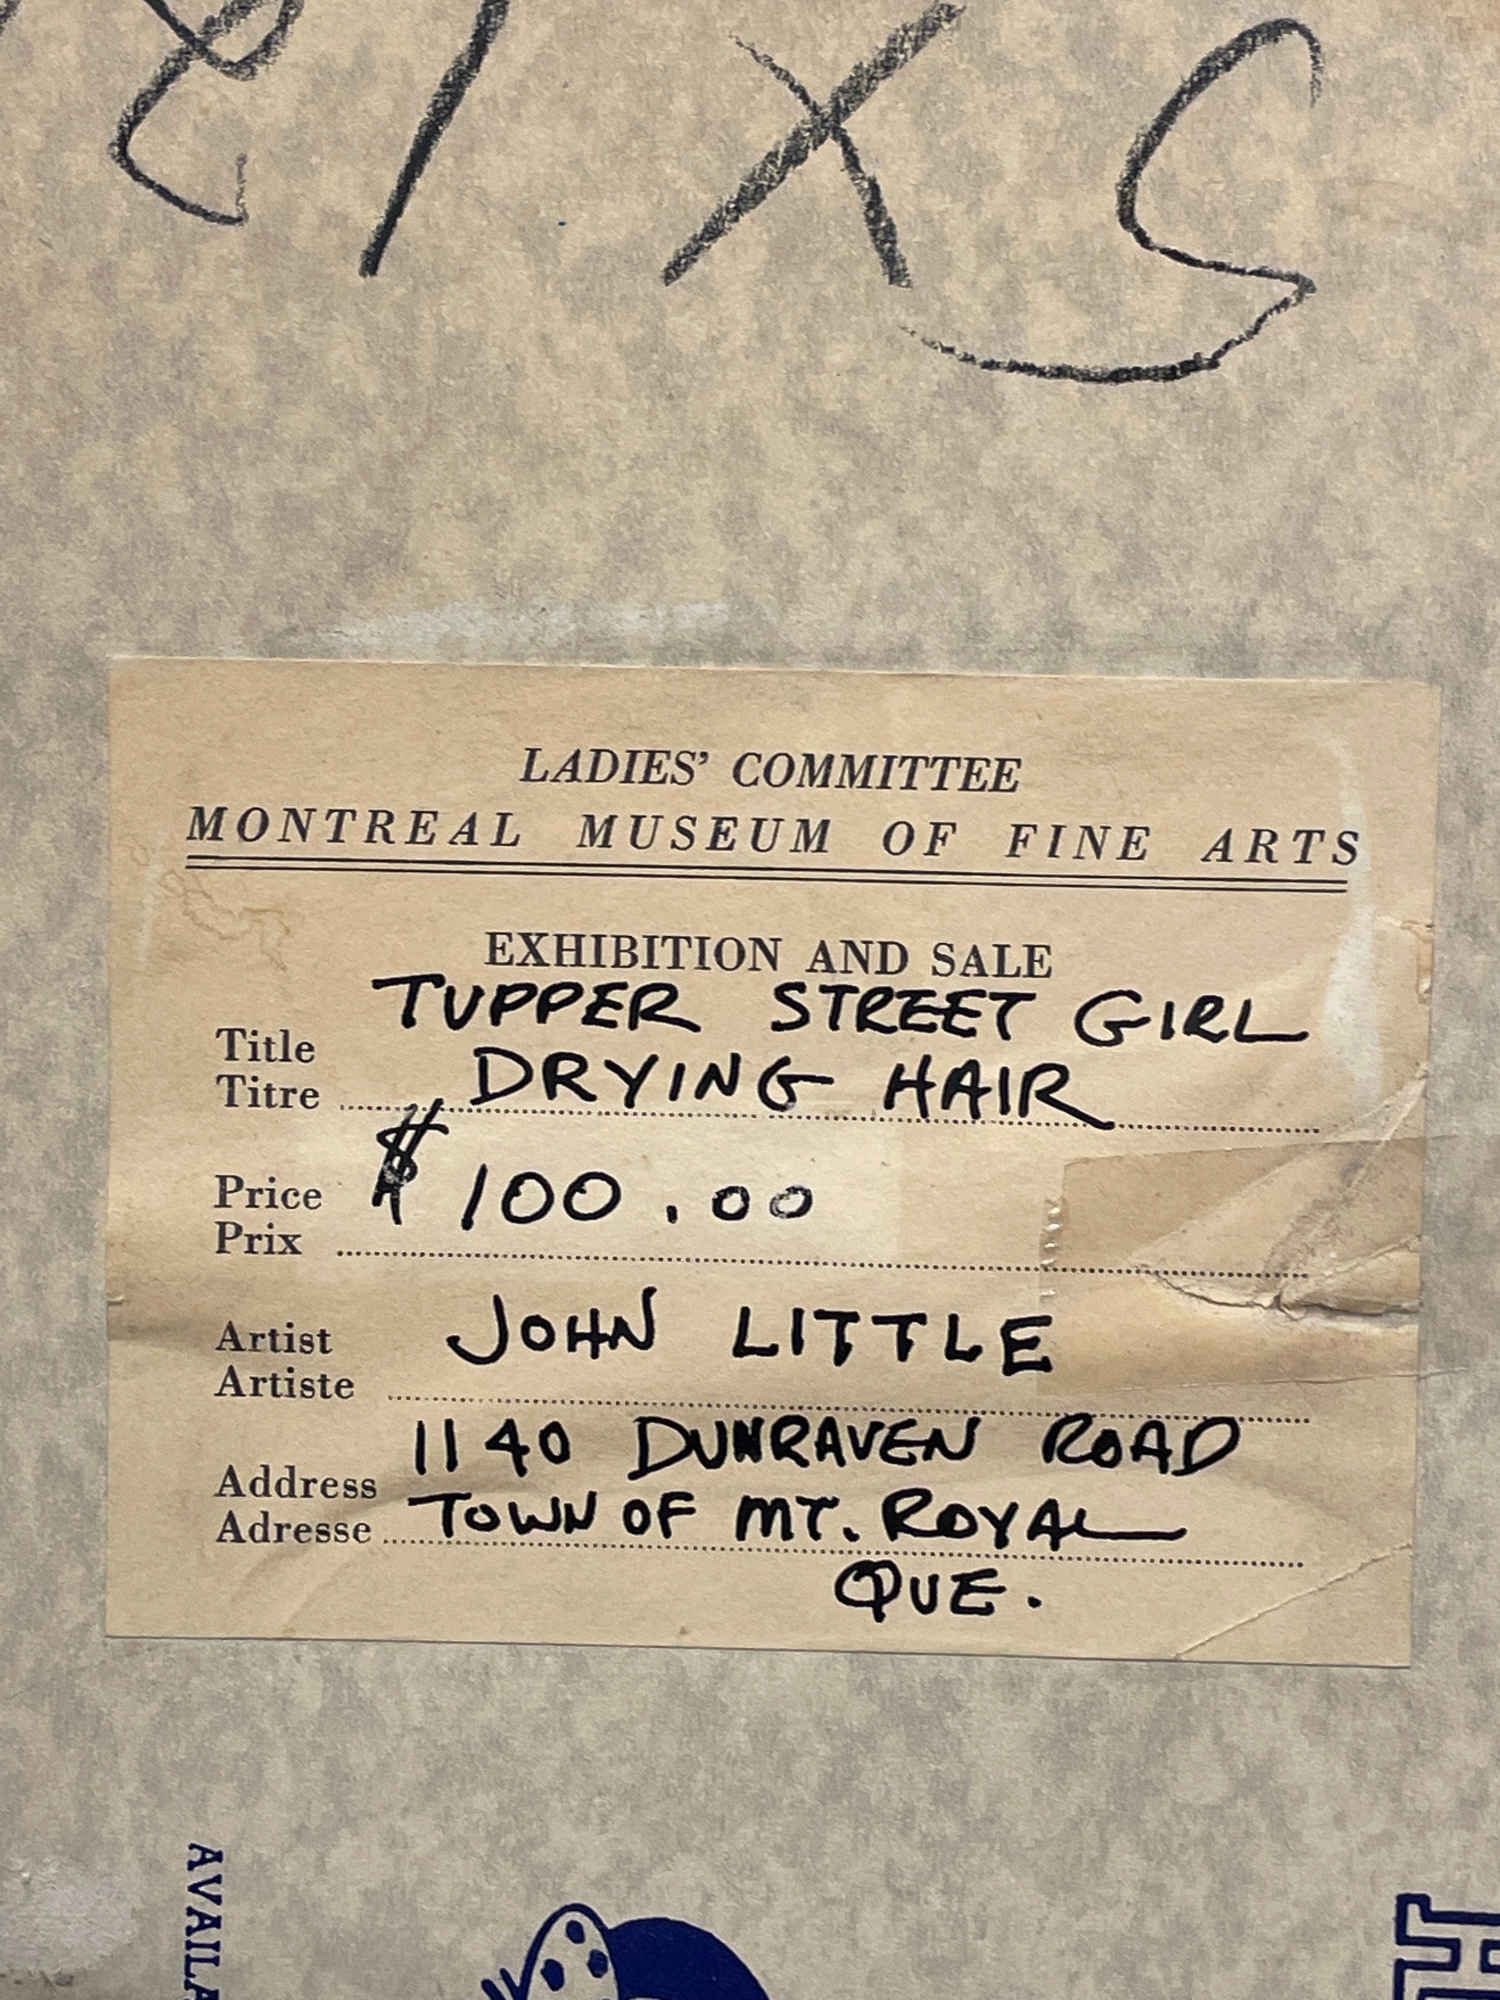 LADIES' COMMITTEE
MONTREAL MUSEUM OF FINE ARTS
EXHIBITION AND SALE
TUPPER STREET GIRL
Title
Titre DRYING HAIR
Price $ 100.00
Prix
Artist JOHN LITTLE
Artiste
1140 DUNRAVEN ROAD
Address
Adresse TOWN OF MT. ROYAL
QUE.